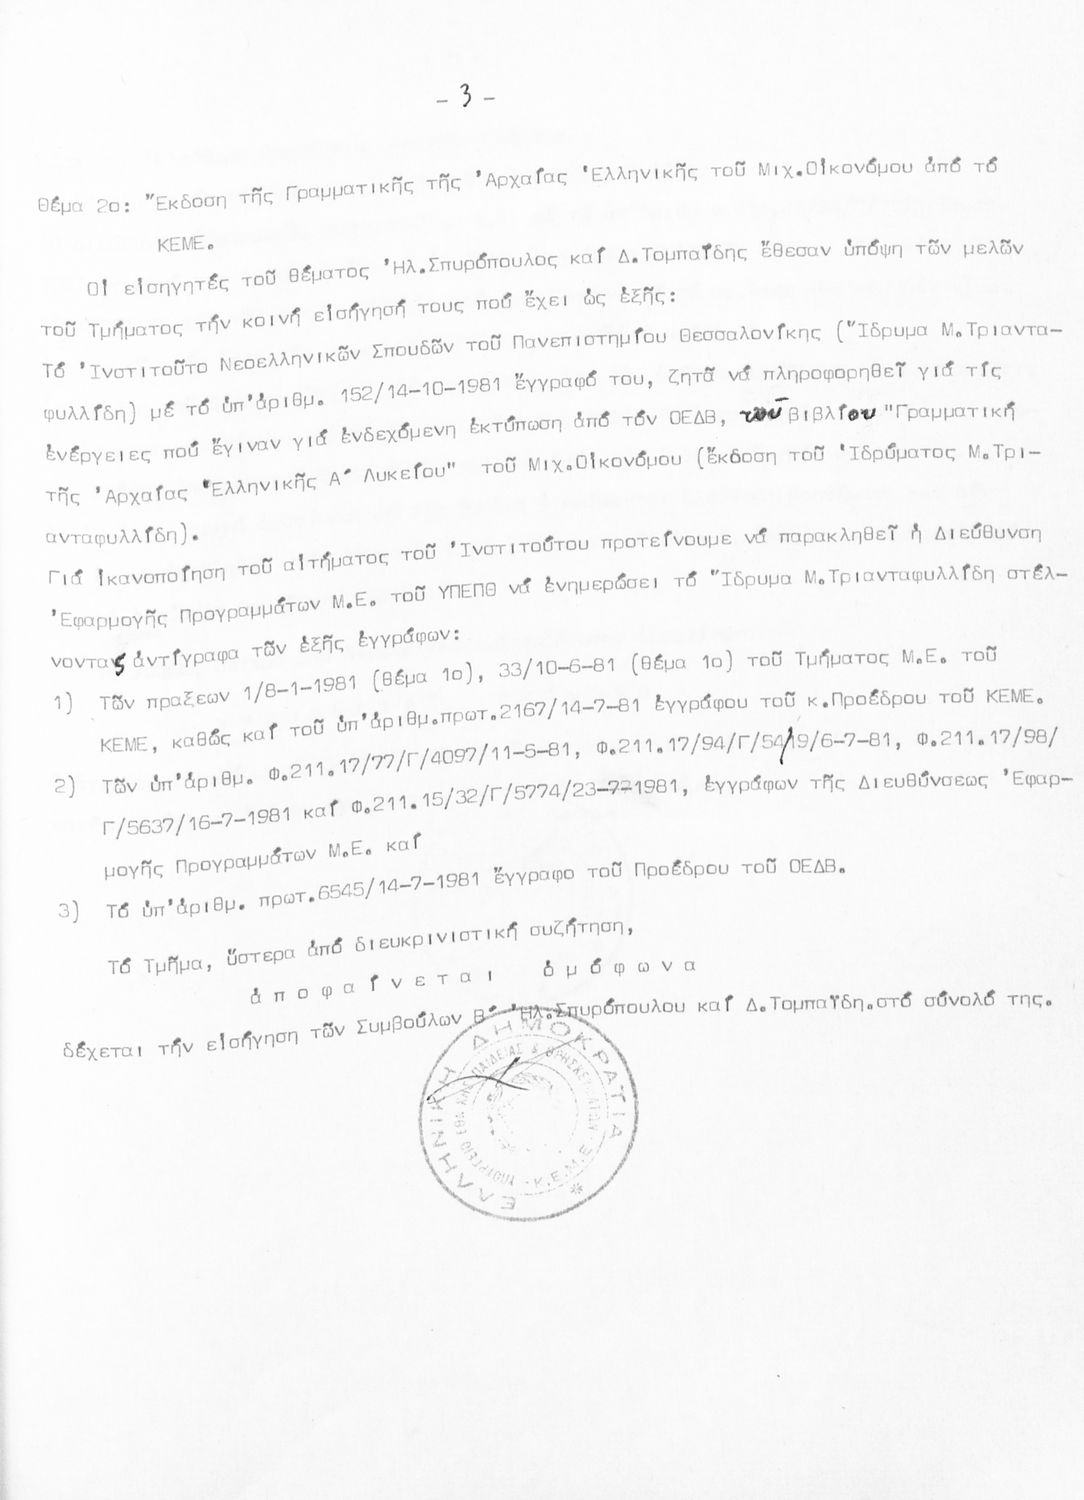 - 3 -
Θέμα 2ο: Ἔκδοση τῆς Γραμματικῆς τῆς Ἀρχαίας Ἑλληνικῆς τοῦ Μιχ.Οἰκονόμου ἀπό τό
ΚΕΜΕ.
Οἱ εἰσηγητές τοῦ θέματος Ἠλ.Σπυρόπουλος καί Δ.Τομπαΐδης ἔθεσαν ὑπόψη τῶν μελῶν
τοῦ Τμήματος τήν κοινή εἰσήγησή τους πού ἔχει ὡς ἑξῆς:
Τό Ἰνστιτοῦτο Νεοελληνικῶν Σπουδῶν τοῦ Πανεπιστημίου Θεσσαλονίκης (Ἵδρυμα Μ.Τριαντα-
φυλλίδη) μέ τό ὑπ'ἀριθμ. 152/14-10-1981 ἔγγραφό του, ζητᾶ νά πληροφορηθεῖ γιά τίς
ἐνέργειες πού ἔγιναν γιά ἐνδεχόμενη ἐκτύπωση ἀπό τόν ΟΕΔΒ, τοῦ βιβλίου "Γραμματική
τῆς Ἀρχαίας Ἑλληνικῆς Α´ Λυκείου" τοῦ Μιχ.Οἰκονόμου (ἔκδοση τοῦ Ἱδρύματος Μ.Τρι-
ανταφυλλίδη).
Γιά ἱκανοποίηση τοῦ αἰτήματος τοῦ Ἰνστιτούτου προτείνουμε νά παρακληθεῖ ἡ Διεύθυνση
Ἐφαρμογῆς Προγραμμάτων Μ.Ε. τοῦ ΥΠΕΠΘ νά ἐνημερώσει τό Ἵδρυμα Μ.Τριανταφυλλίδη στέλ-
νοντας ἀντίγραφα τῶν ἑξῆς ἐγγράφων:
1) Τῶν πραξεων 1/8-1-1981 (θέμα 1ο), 33/10-6-81 (θέμα 1ο) τοῦ Τμήματος Μ.Ε. τοῦ
ΚΕΜΕ, καθώς καί τοῦ ὑπ'ἀριθμ.πρωτ.2167/14-7-81 ἐγγράφου τοῦ κ.Προέδρου τοῦ ΚΕΜΕ.
2) Τῶν ὑπ'ἀριθμ. Φ.211.17/77/Γ/4097/11-5-81, Φ.211.17/94/Γ/5419/6-7-81, Φ.211.17/98/
Γ/5637/16-7-1981 καί Φ.211.15/32/Γ/5774/23-7-1981, ἐγγράφων τῆς Διευθύνσεως Ἐφαρ-
μογῆς Προγραμμάτων Μ.Ε. καί
3) Τό ὑπ'ἀριθμ. πρωτ.6545/14-7-1981 ἔγγραφο τοῦ Προέδρου τοῦ ΟΕΔΒ.
Τό Τμῆμα, ὕστερα ἀπό διευκρινιστική συζήτηση,
ἀ π ο φ α ί ν ε τ α ι ὁ μ ό φ ω ν α
δέχεται τήν εἰσήγηση τῶν Συμβούλων Β´ Ἠλ.Σπυρόπουλου καί Δ.Τομπαΐδη.στό σύνολό της.
ΕΛΛΗΝΙΚΗ ΔΗΜΟΚΡΑΤΙΑ
ΥΠΟΥΡΓΕΙΟ ΕΘΝΙΚΗΣ ΠΑΙΔΕΙΑΣ & ΘΡΗΣΚΕΥΜΑΤΩΝ - Κ.Ε.Μ.Ε